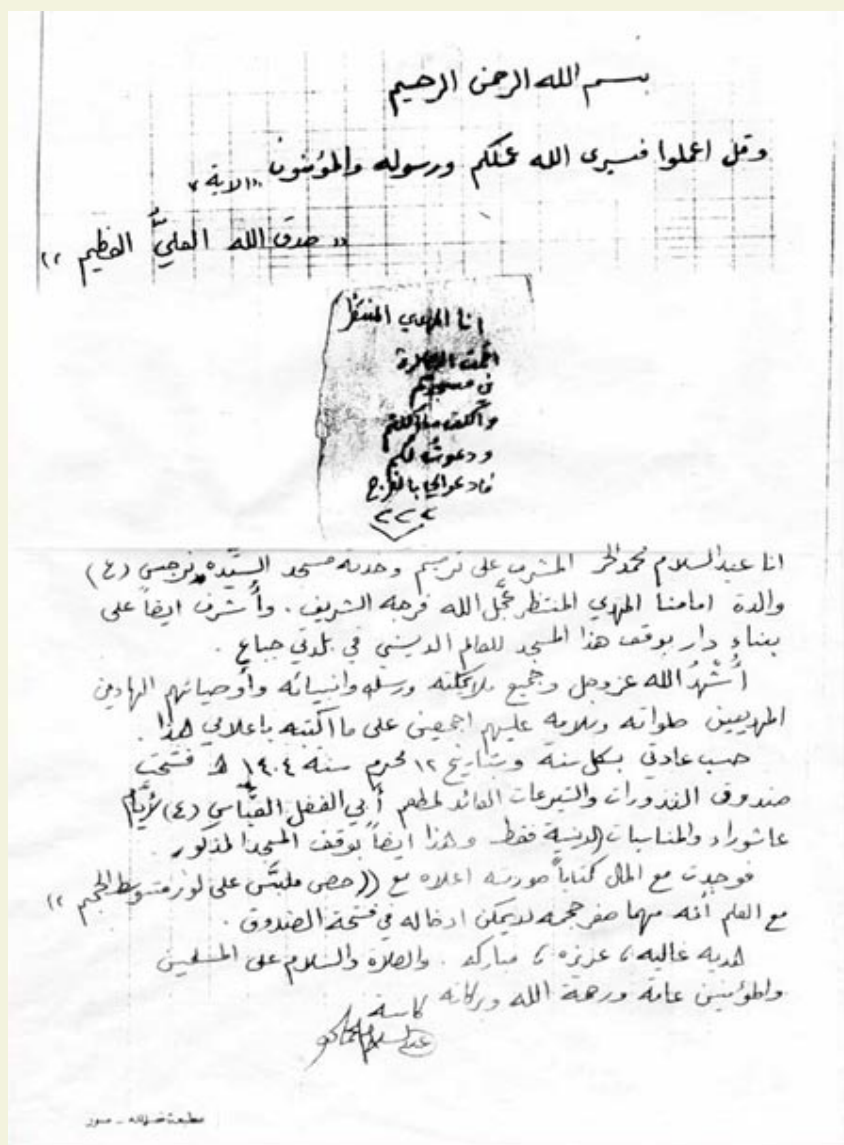 بسم الله الرحمن الرحيم
وقل اعملوا فسيرى الله عملكم ورسوله والمؤمنون "الاية"
"صدق الله العليُّ العظيم"
انا المهدي المنتظر
اقمت الصلاة
في مسجدكم
وأكلت مما اكلتم
ودعوتُ لكم
فادعوا لي بالفرج
انا عبدالسلام محمد الحر المشرف على ترميم وخدمة مسجد السيّده نرجس (ع)
والدة امامنا المهدي المنتظر عجّل الله فرجه الشريف. وأُشرف ايضاً على
بناءِ دار بوقف هذا المسجد للعالم الديني في بلدتي جباع.
أُشْهدُ الله عزوجل وجميع ملائكته ورسله وانبيائه وأوصيائهم الهادين
المهديين صلواته وسلامه عليهم اجمعين على ما اكتبه باعلامي هذا.
حسب عادتي بكل سنة وبتاريخ ١٢ محرم سنة ١٤٠٤ ه فتحت
صندوق النذورات والتبرعات العائد لمطعم أبي الفضل العبَّاس (ع) لأيَّام
عاشوراء والمناسبات الدينية فقط وهذا ايضاً بوقف المسجد المذكور.
فوجدت مع المال كتاباً صورته اعلاه مع ((حصى ملبَّس على لوز متوسط الحجم))
مع العلم أنه مهما صغر حجمه لا يمكن ادخاله في فتحة الصندوق.
هدية غاليه، عزيزه، مباركه. والصلاة والسلام على المسلمين
والمؤمنين عامة ورحمة الله وبركاته
كاتبه